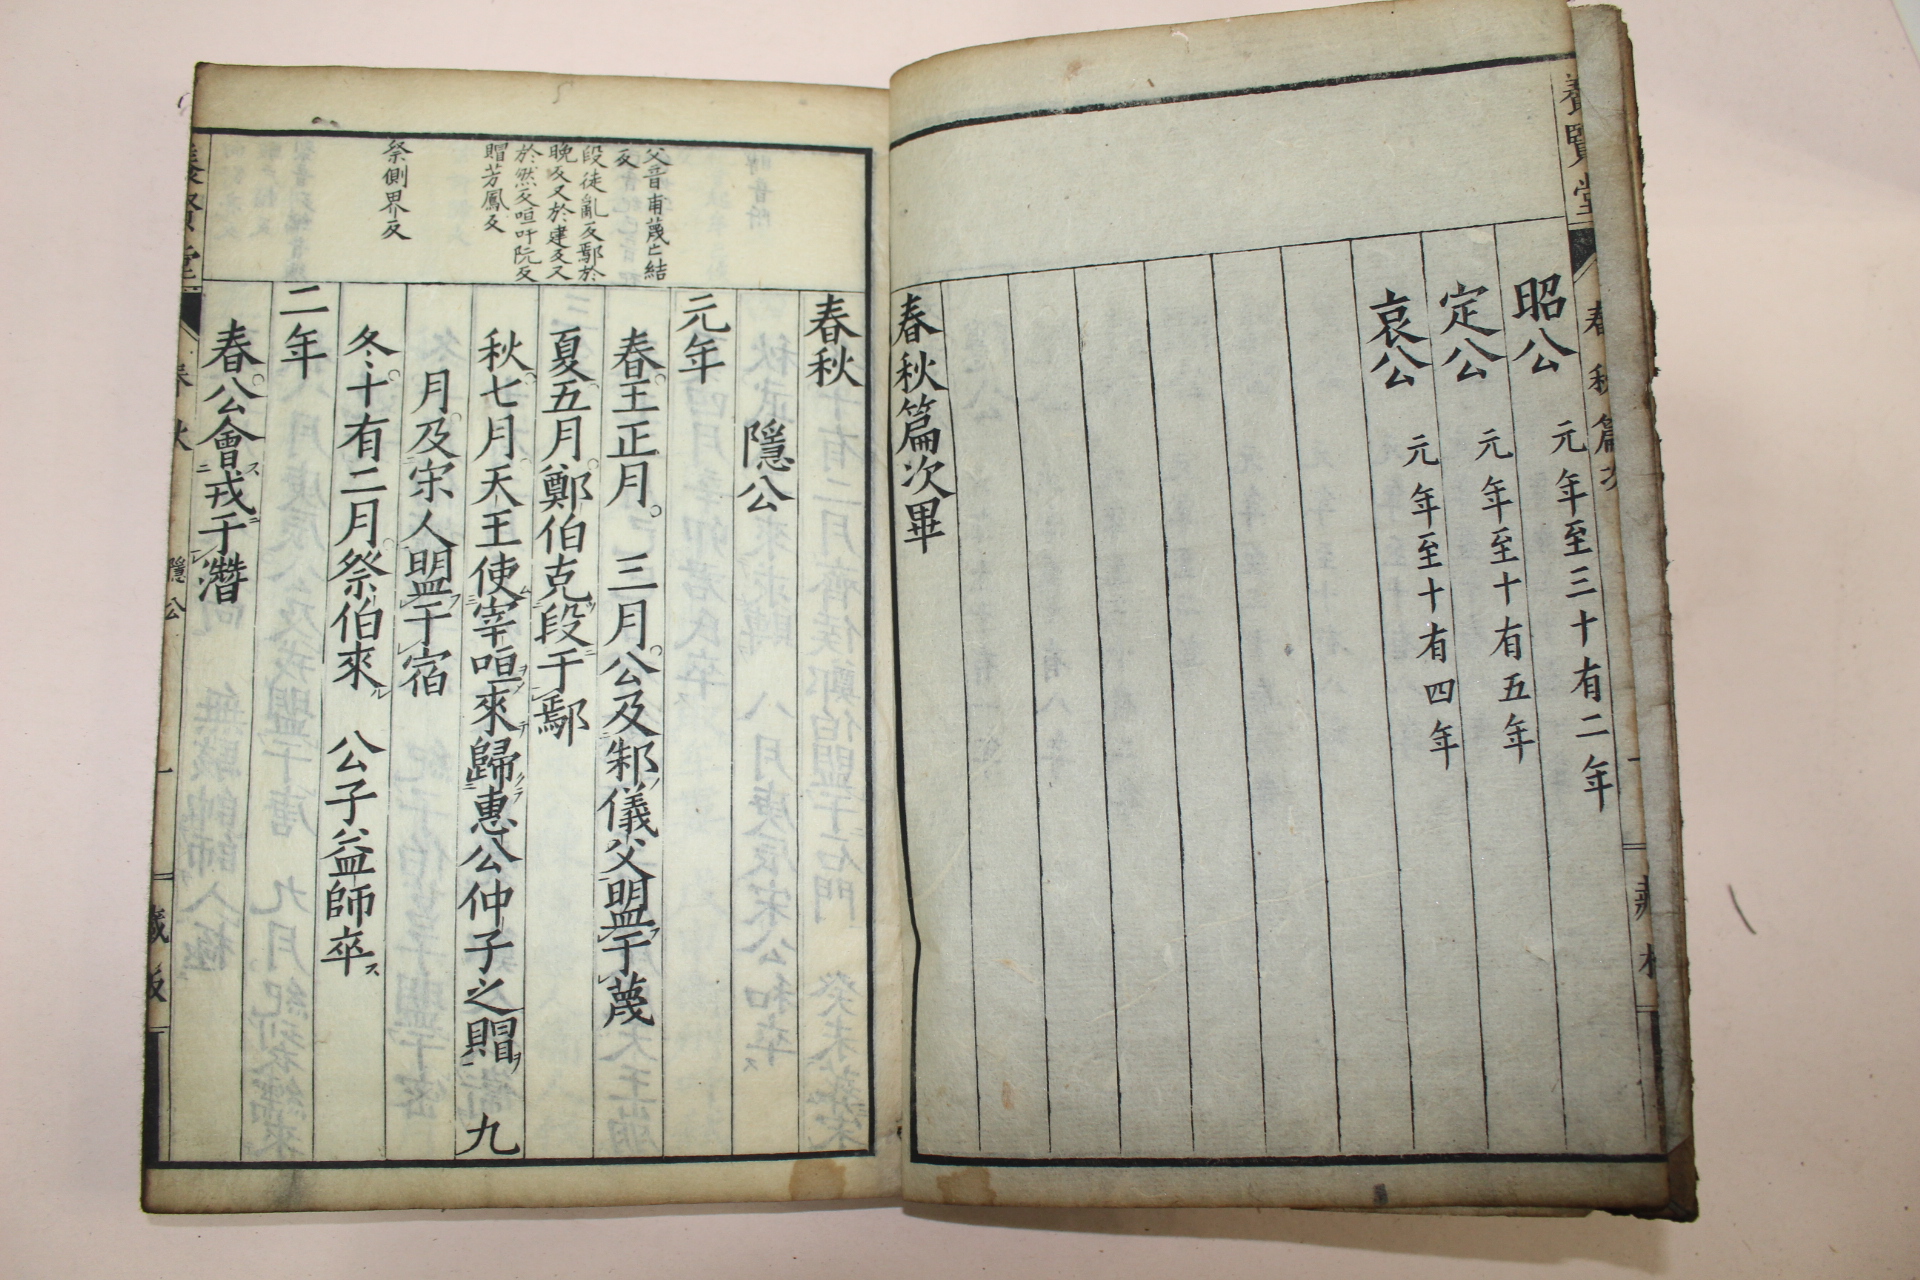 養賢堂
春秋篇次
昭公 元年至三十有二年
定公 元年至十有五年
哀公 元年至十有四年
春秋篇次畢
父音甫蔑亡結
反
段徒亂反鄢於
晚反又於建反又
於然反咺吁阮反
賵芳鳳反
祭側界反
春秋
隱公
元年
春王正月。 三月公及邾儀父盟于蔑
夏五月鄭伯克段于鄢
秋七月天王使宰咺來歸惠公仲子之賵 九
月及宋人盟于宿
冬十有二月祭伯來 公子益師卒
二年
春公會戎于潛
隱公
一